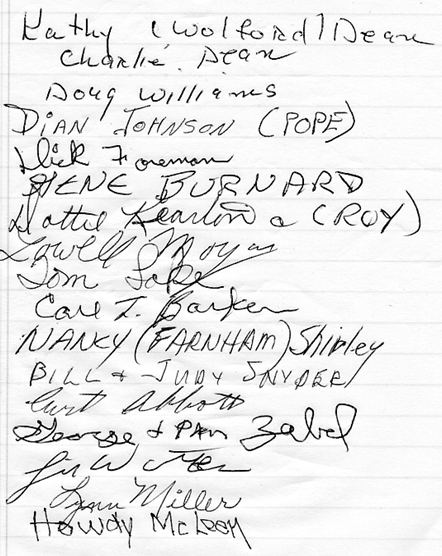 Kathy (Wolford) Dean
Charlie Dean
Doug Williams
DiAN JOHNSON (POPE)
Dick Foreman
GENE BURNARD
Hattie (ROY)
Lowell Moyer
Tom Lake
Carl I. Barker
NANCY (FARNHAM) Shipley
BILL & JUDY SNYDER
Curt Abbott
George & PAM Zabel
Lynn Miller
Howdy McLeen